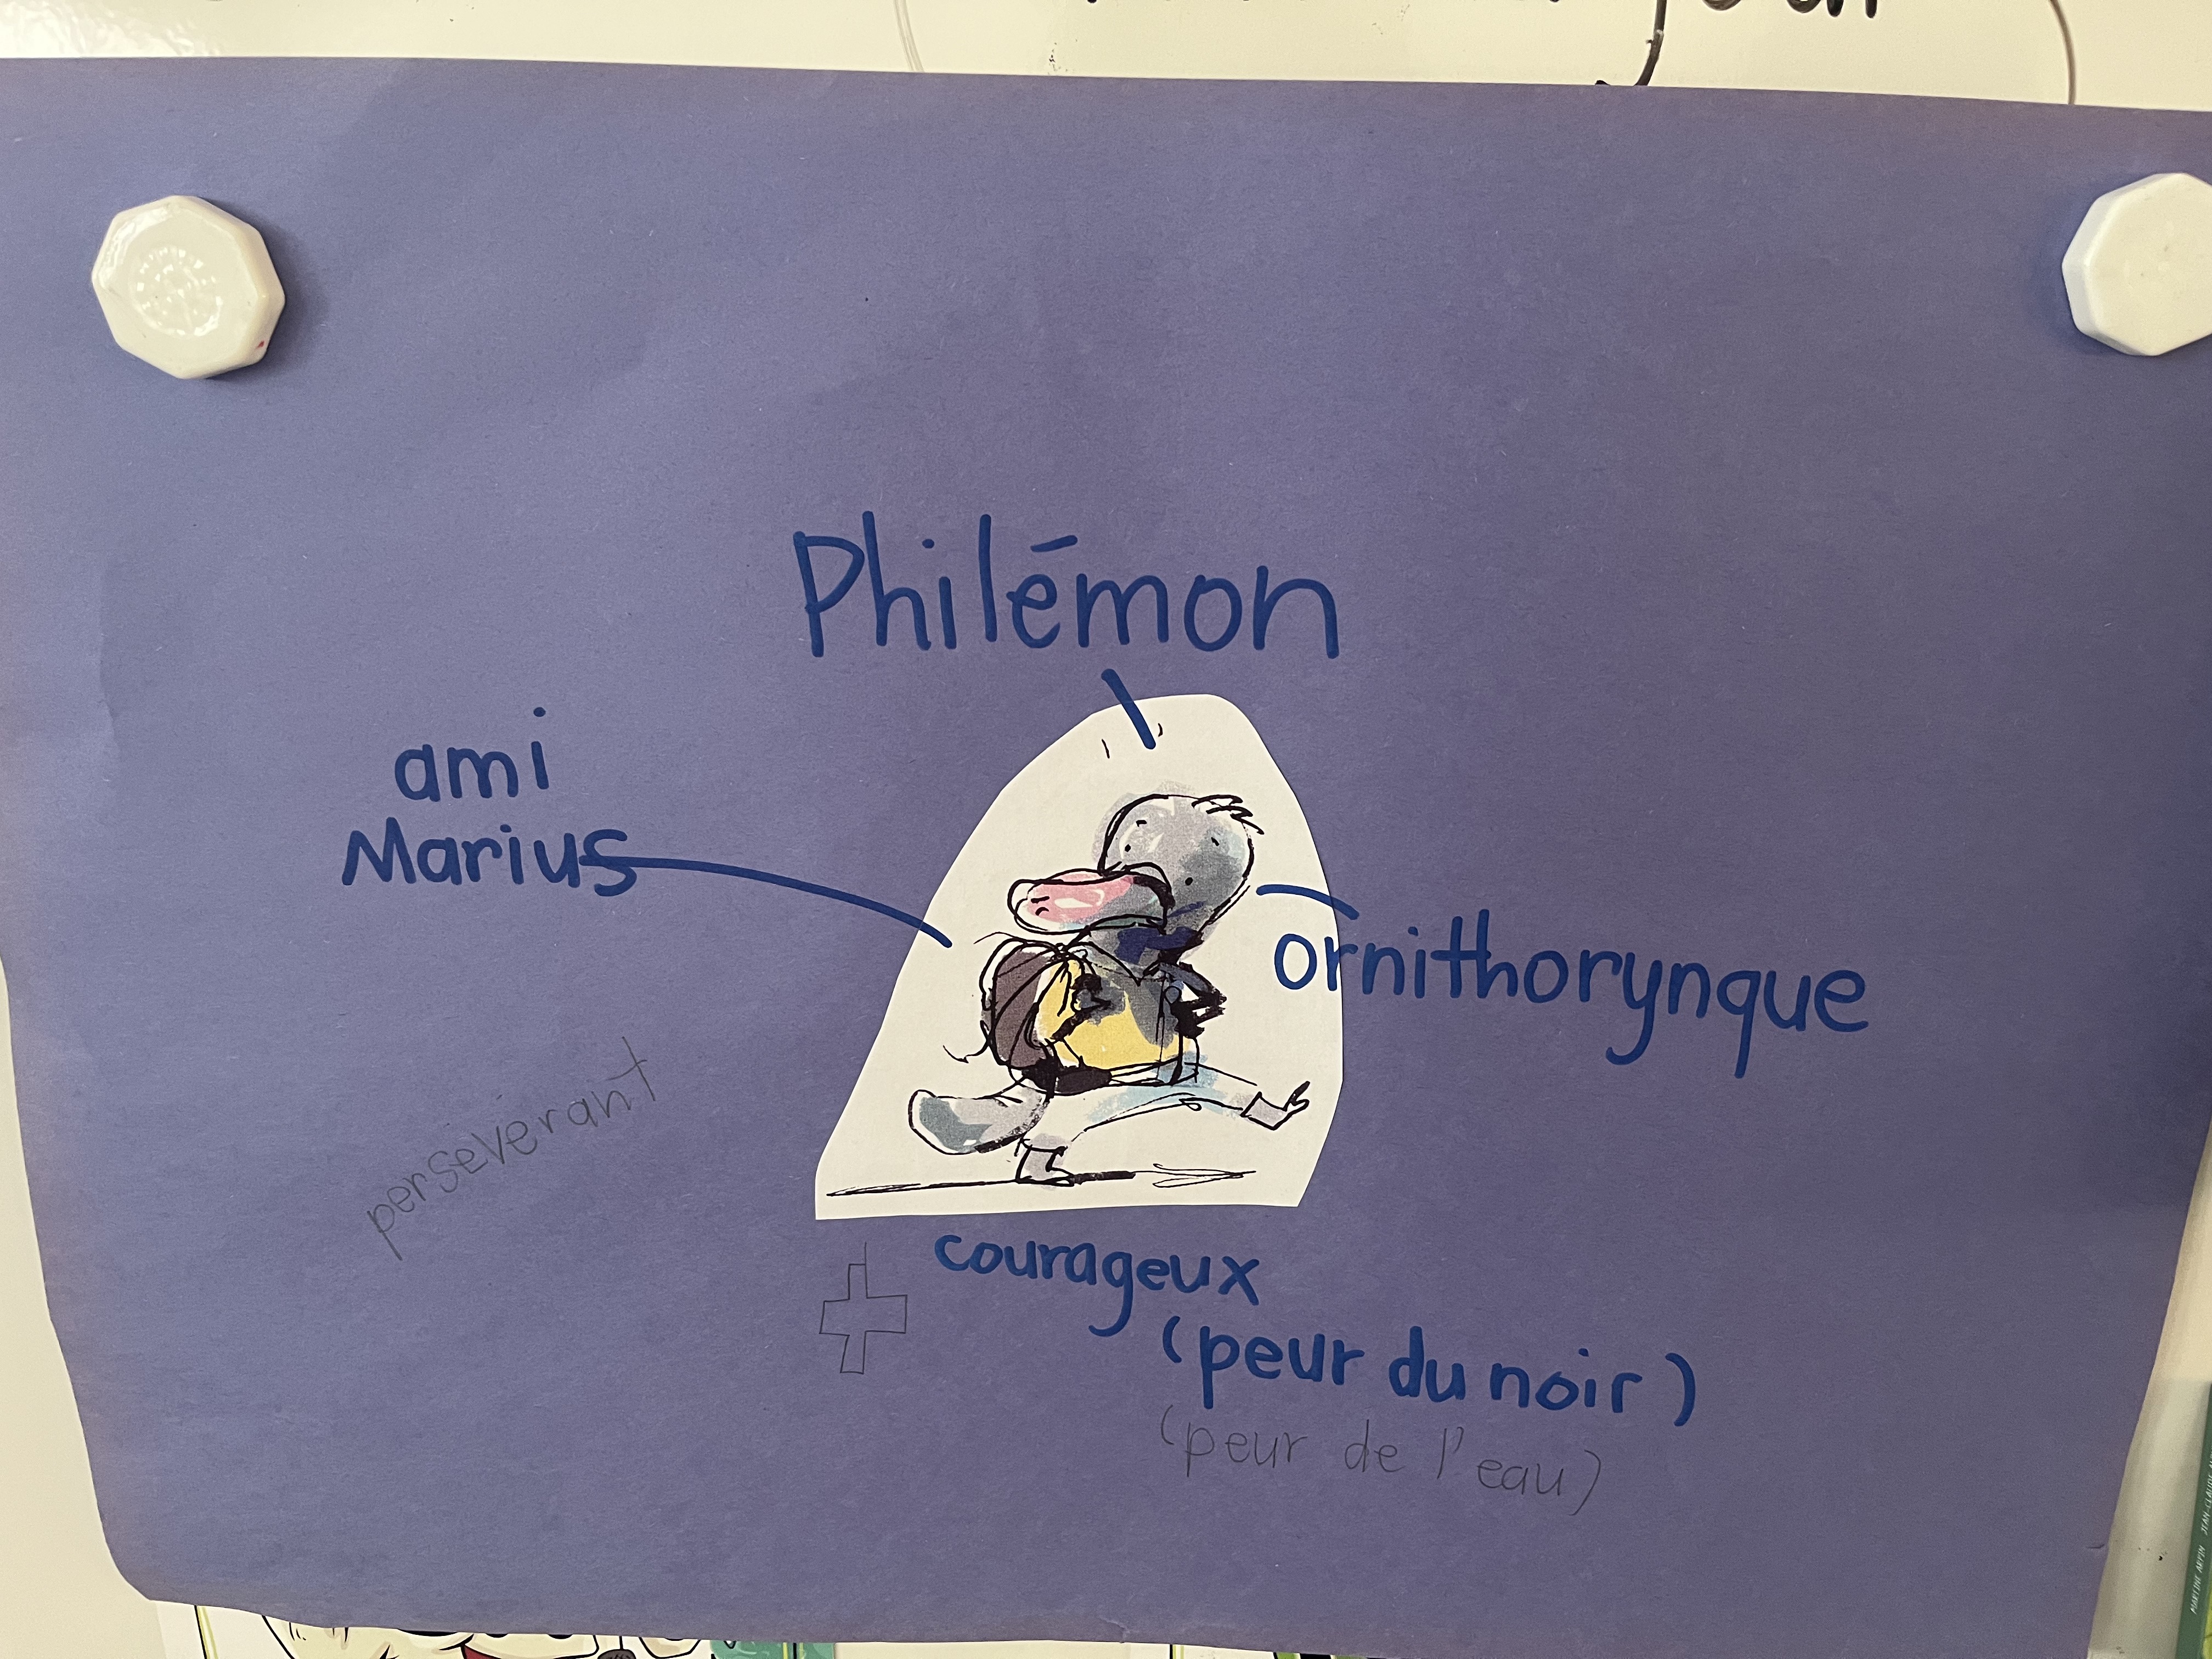 Philémon
ami
Marius
ornithorynque
persévérant
courageux
(peur du noir)
(peur de l'eau)